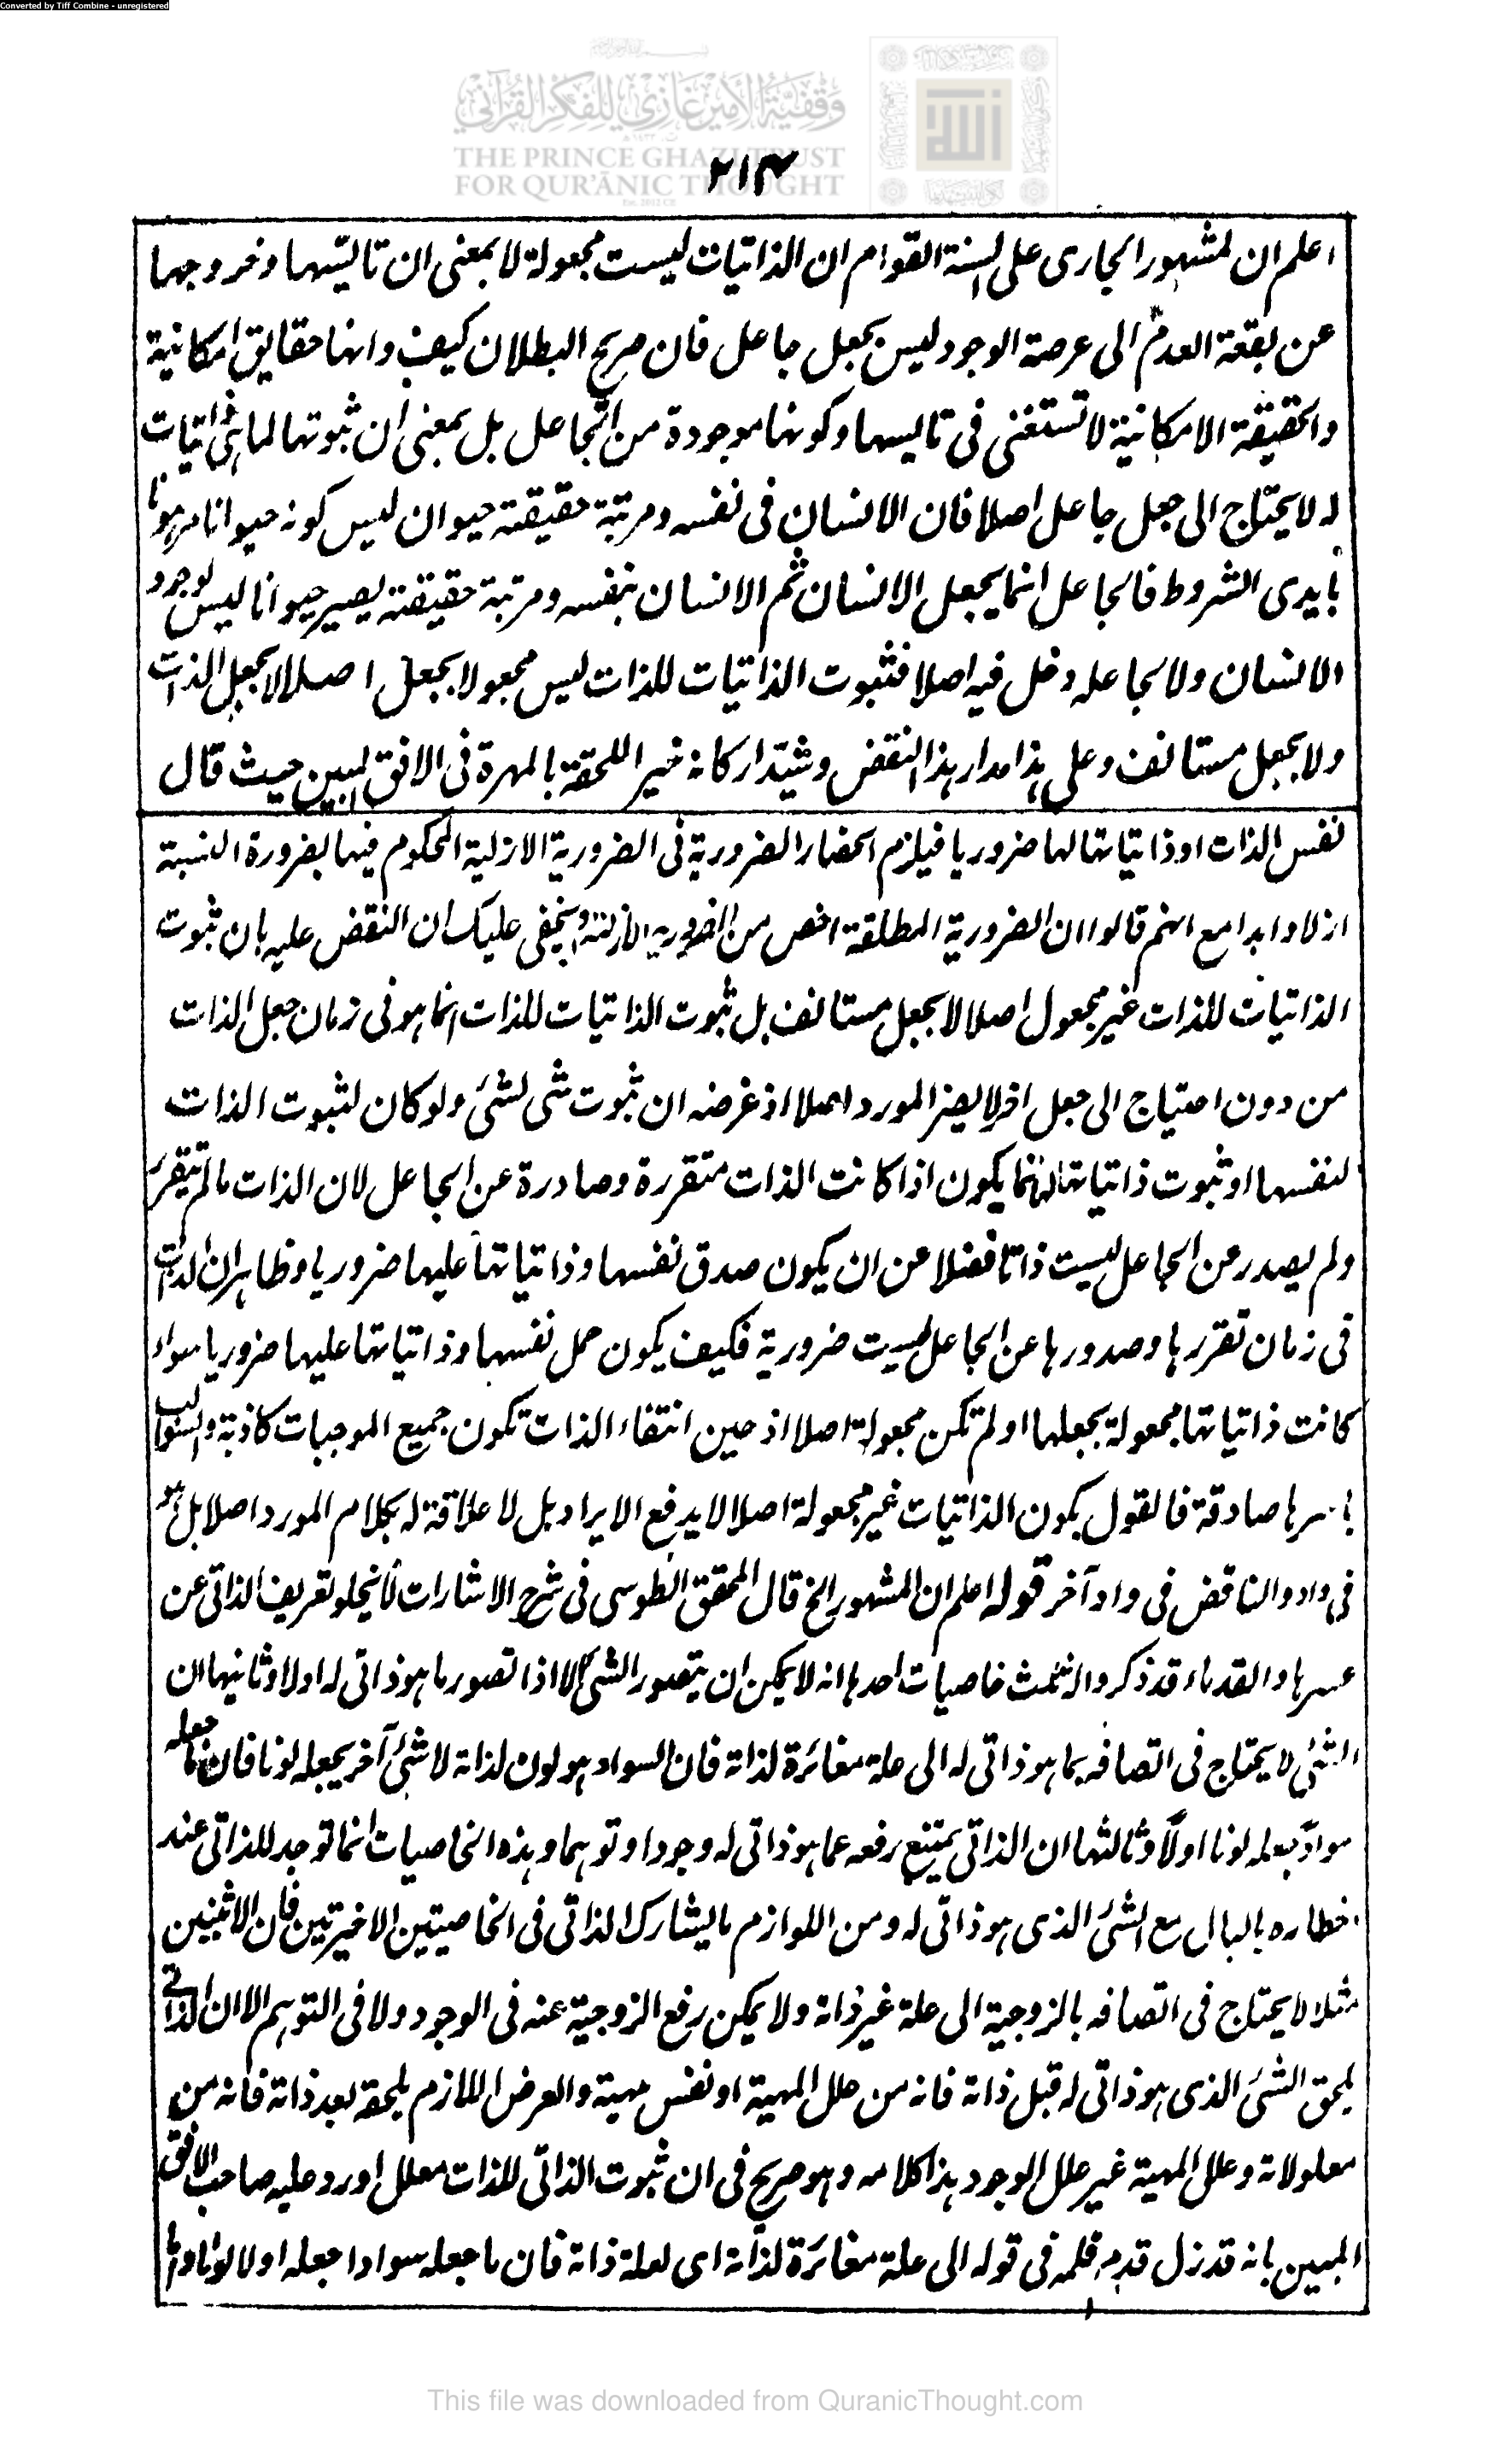 Converted by Tiff Combine - unregistered
وقفية الأمير غازي للفكر القرآني
THE PRINCE GHAZI TRUST
FOR QUR'ĀNIC THOUGHT
٢١٤
اعلم ان المشهور الجارى على السنة القوام ان الذاتيات ليست مجعولة لا بمعنى ان تاليسها وخروجها
عن بقعة العدم الى عرصة الوجود ليس بجعل جاعل فان صريح البطلان كيف وانها حقايق امكانية
والحقيقة الامكانية لا تستغنى فى تاليسها وكونها موجودة من الجاعل بل بمعنى ان ثبوتها لما هى ذاتيات
له لا يحتاج الى جعل جاعل اصلا فان الانسان فى نفسه ومرتبة حقيقته حيوان ليس كونه حيوانا مرهونا
بايدى الشروط فالجاعل انما يجعل الانسان ثم الانسان بنفسه ومرتبة حقيقته يصير حيوانا ليس لوجود
الانسان ولا لجاعله دخل فيه اصلا فثبوت الذاتيات للذات ليس مجعولا بجعل اصلا لا بجعل الذات
ولا بجعل مستانف وعلى هذا مدار هذا النقض وشيّد اركانه خير اللحقة بالمهرة فى الافق المبين حيث قال
نفس الذات او ذاتياتها لها ضروريا فيلزم انحصار الضرورية فى الضرورية الازلية المحكوم فيها بضرورة النسبة
ازلا وابدا مع انهم قالوا ان الضرورية المطلقة اخص من الضرورية الازلية ولا يخفى عليك ان النقض عليه بان ثبوت
الذاتيات للذات غير مجعول اصلا لا بجعل مستانف بل ثبوت الذاتيات للذات انما هو فى زمان جعل الذات
من دون احتياج الى جعل اخر لا يضر المورد اصلا اذ غرضه ان ثبوت شى لشئ ولو كان لثبوت الذات
لنفسها او ثبوت ذاتياتها لها انما يكون اذا كانت الذات متقررة وصادرة عن الجاعل لان الذات ما لم يتقرر
ولم يصدر من الجاعل ليست ذاتا فضلا عن ان يكون صدق نفسها وذاتياتها عليها ضروريا وظاهر ان الذات
فى زمان تقررها وصدورها عن الجاعل ليست ضرورية فكيف يكون حمل نفسها وذاتياتها عليها ضروريا سواء
كانت ذاتياتها مجعولة بجعلها او لم تكن مجعولة اصلا اذ حين انتفاء الذات تكون جميع الموجبات كاذبة والسوالب
باسرها صادقة فالقول بكون الذاتيات غير مجعولة اصلا لا يدفع الايراد بل لا علاقة له بكلام المورد اصلا بل هو
فى واد والناقض فى واد آخر قوله اعلم ان المشهور الخ قال المحقق الطوسى فى شرح الاشارات لا يخلو تعريف الذاتى عن
عسرها والقدماء قد ذكروا له ثلث خاصيات احدها انه لا يمكن ان يتصور الشئ الا اذا تصور ما هو ذاتى له اولا وثانيها ان
الشئ لا يحتاج فى اتصافه بما هو ذاتى له الى علة مغائرة لذاته فان السواد هو لون لذاته لا شئ آخر يجعله لونا فان ما جعله
سوادا جعله لونا اولا وثالثها ان الذاتى يمتنع رفعه عما هو ذاتى له وجودا وتوهما وهذه الخاصيات انما توجد للذاتى عند
اخطاره بالبال مع الشئ الذى هو ذاتى له ومن اللوازم ما يشارك الذاتى فى الخاصيتين الاخيرتين فان الاثنين
مثلا لا يحتاج فى اتصافه بالزوجية الى علة غير ذاته ولا يمكن رفع الزوجية عنه فى الوجود ولا فى التوهم الا ان الذاتى
يلحق الشئ الذى هو ذاتى له قبل ذاته فانه من علل المهية او نفس مهيته والعرض اللازم يلحقه بعد ذاته فانه من
معلولاته وعلل المهية غير علل الوجود هذا كلامه وهو صريح فى ان ثبوت الذاتى للذات معلل اورد عليه صاحب الافق
المبين بانه قد زل قدم قلمه فى قوله الى علة مغائرة لذاته اى لعلة ذاته فان ما جعله سوادا جعله اولا لونا
This file was downloaded from QuranicThought.com